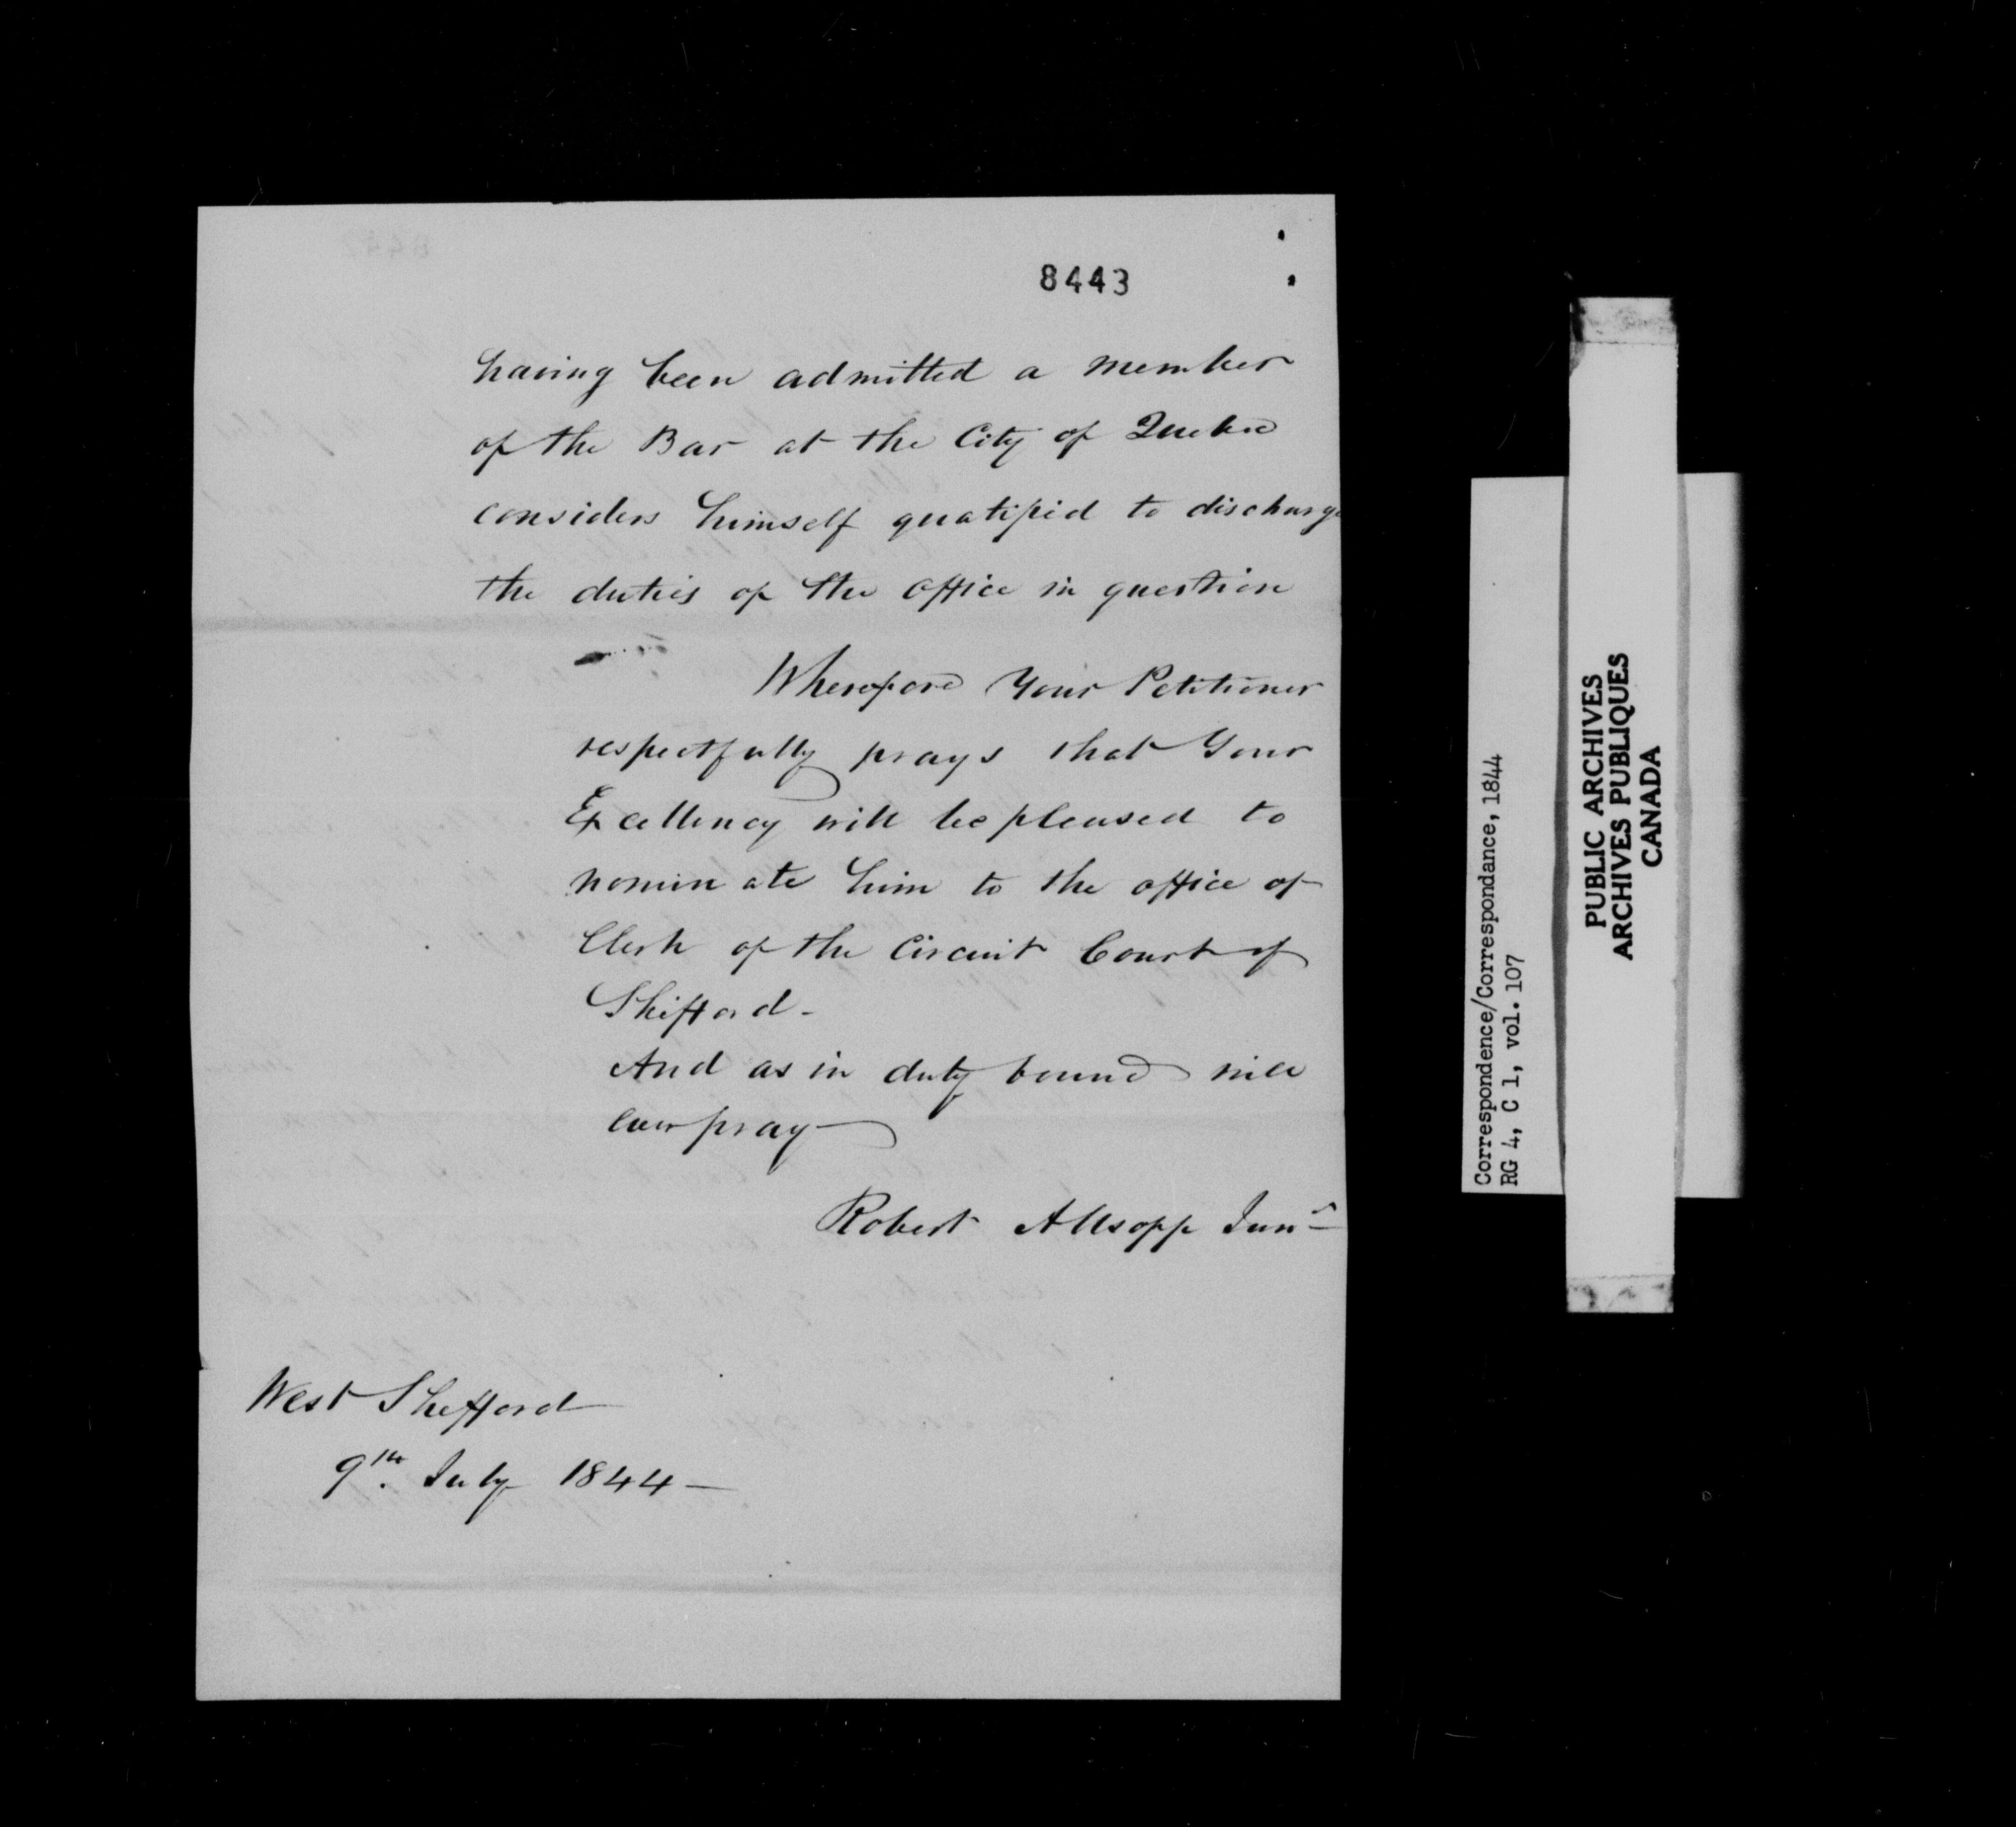 8443
having been admitted a member
of the Bar at the City of Quebec
considers himself qualified to discharge
the duties of the office in question
Wherefore Your Petitioner
respectfully prays that Your
Excellency will be pleased to
nominate him to the office of
Clerk of the Circuit Court of
Shefford -
And as in duty bound will
ever pray
Robert Allsopp Junr
West Shefford
9th. July 1844 -
Correspondence/Correspondance, 1844
RG 4, C 1, vol. 107
PUBLIC ARCHIVES
ARCHIVES PUBLIQUES
CANADA